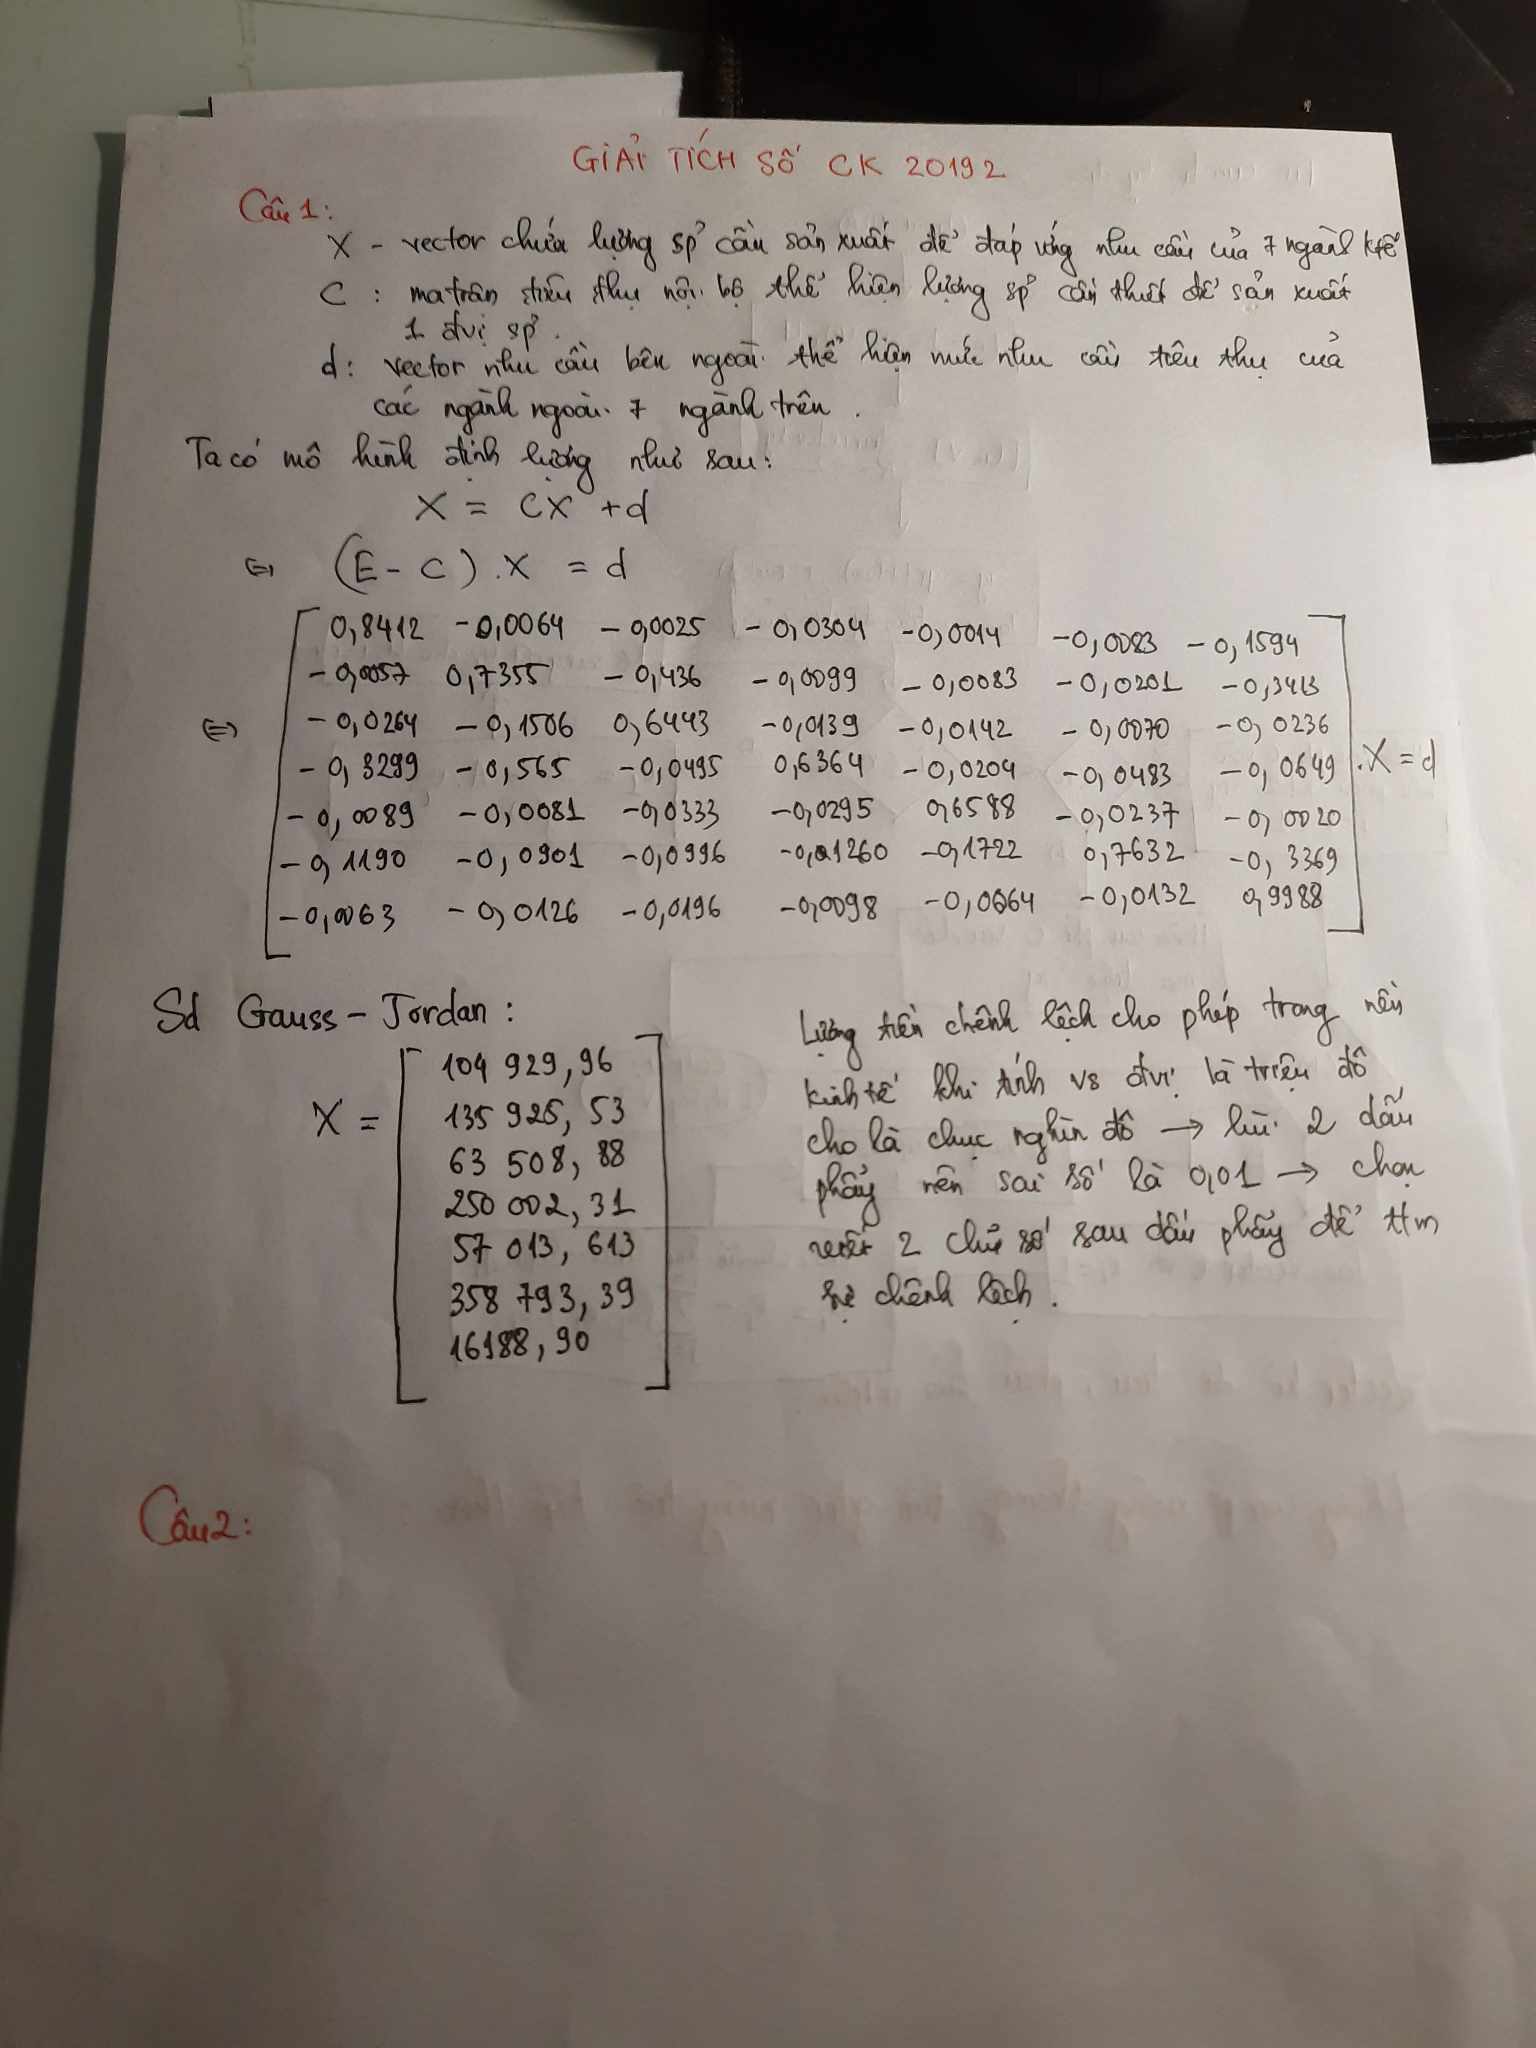 GIẢI TÍCH SỐ CK 20192
Câu 1:
X - vector chứa lượng sp cần sản xuất để đáp ứng nhu cầu của 7 ngành ktế
C : ma trận tiêu thụ nội bộ thể hiện lượng sp cần thiết để sản xuất
1 đvị sp.
d: vector nhu cầu bên ngoài thể hiện mức nhu cầu tiêu thụ của
các ngành ngoài 7 ngành trên.
Ta có mô hình định lượng như sau:
X = CX + d
⇔ (E - C).X = d
0,8412 -0,0064 -0,0025 -0,0304 -0,0014 -0,0083 -0,1594
-0,0057 0,7355 -0,436 -0,0099 -0,0083 -0,0201 -0,3413
⇔ -0,0264 -0,1506 0,6443 -0,0139 -0,0142 -0,0070 -0,0236
-0,3299 -0,565 -0,0495 0,6364 -0,0204 -0,0483 -0,0649 .X = d
-0,0089 -0,0081 -0,0333 -0,0295 0,6588 -0,0237 -0,0020
-0,1190 -0,0901 -0,0996 -0,1260 -0,1722 0,7632 -0,3369
-0,0063 -0,0126 -0,0196 -0,0098 -0,0064 -0,0132 0,9988
Sd Gauss - Jordan:
X =
104 929,96
135 925,53
63 508,88
250 002,31
57 013,613
358 793,39
16188,90
Lượng tiền chênh lệch cho phép trong nền
kinh tế khi tính vs đvị là triệu đô
cho là chục nghìn đô → lùi 2 dấu
phẩy nên sai số là 0,01 → chọn
2 chữ số sau dấu phẩy để
sự chênh lệch.
Câu 2: